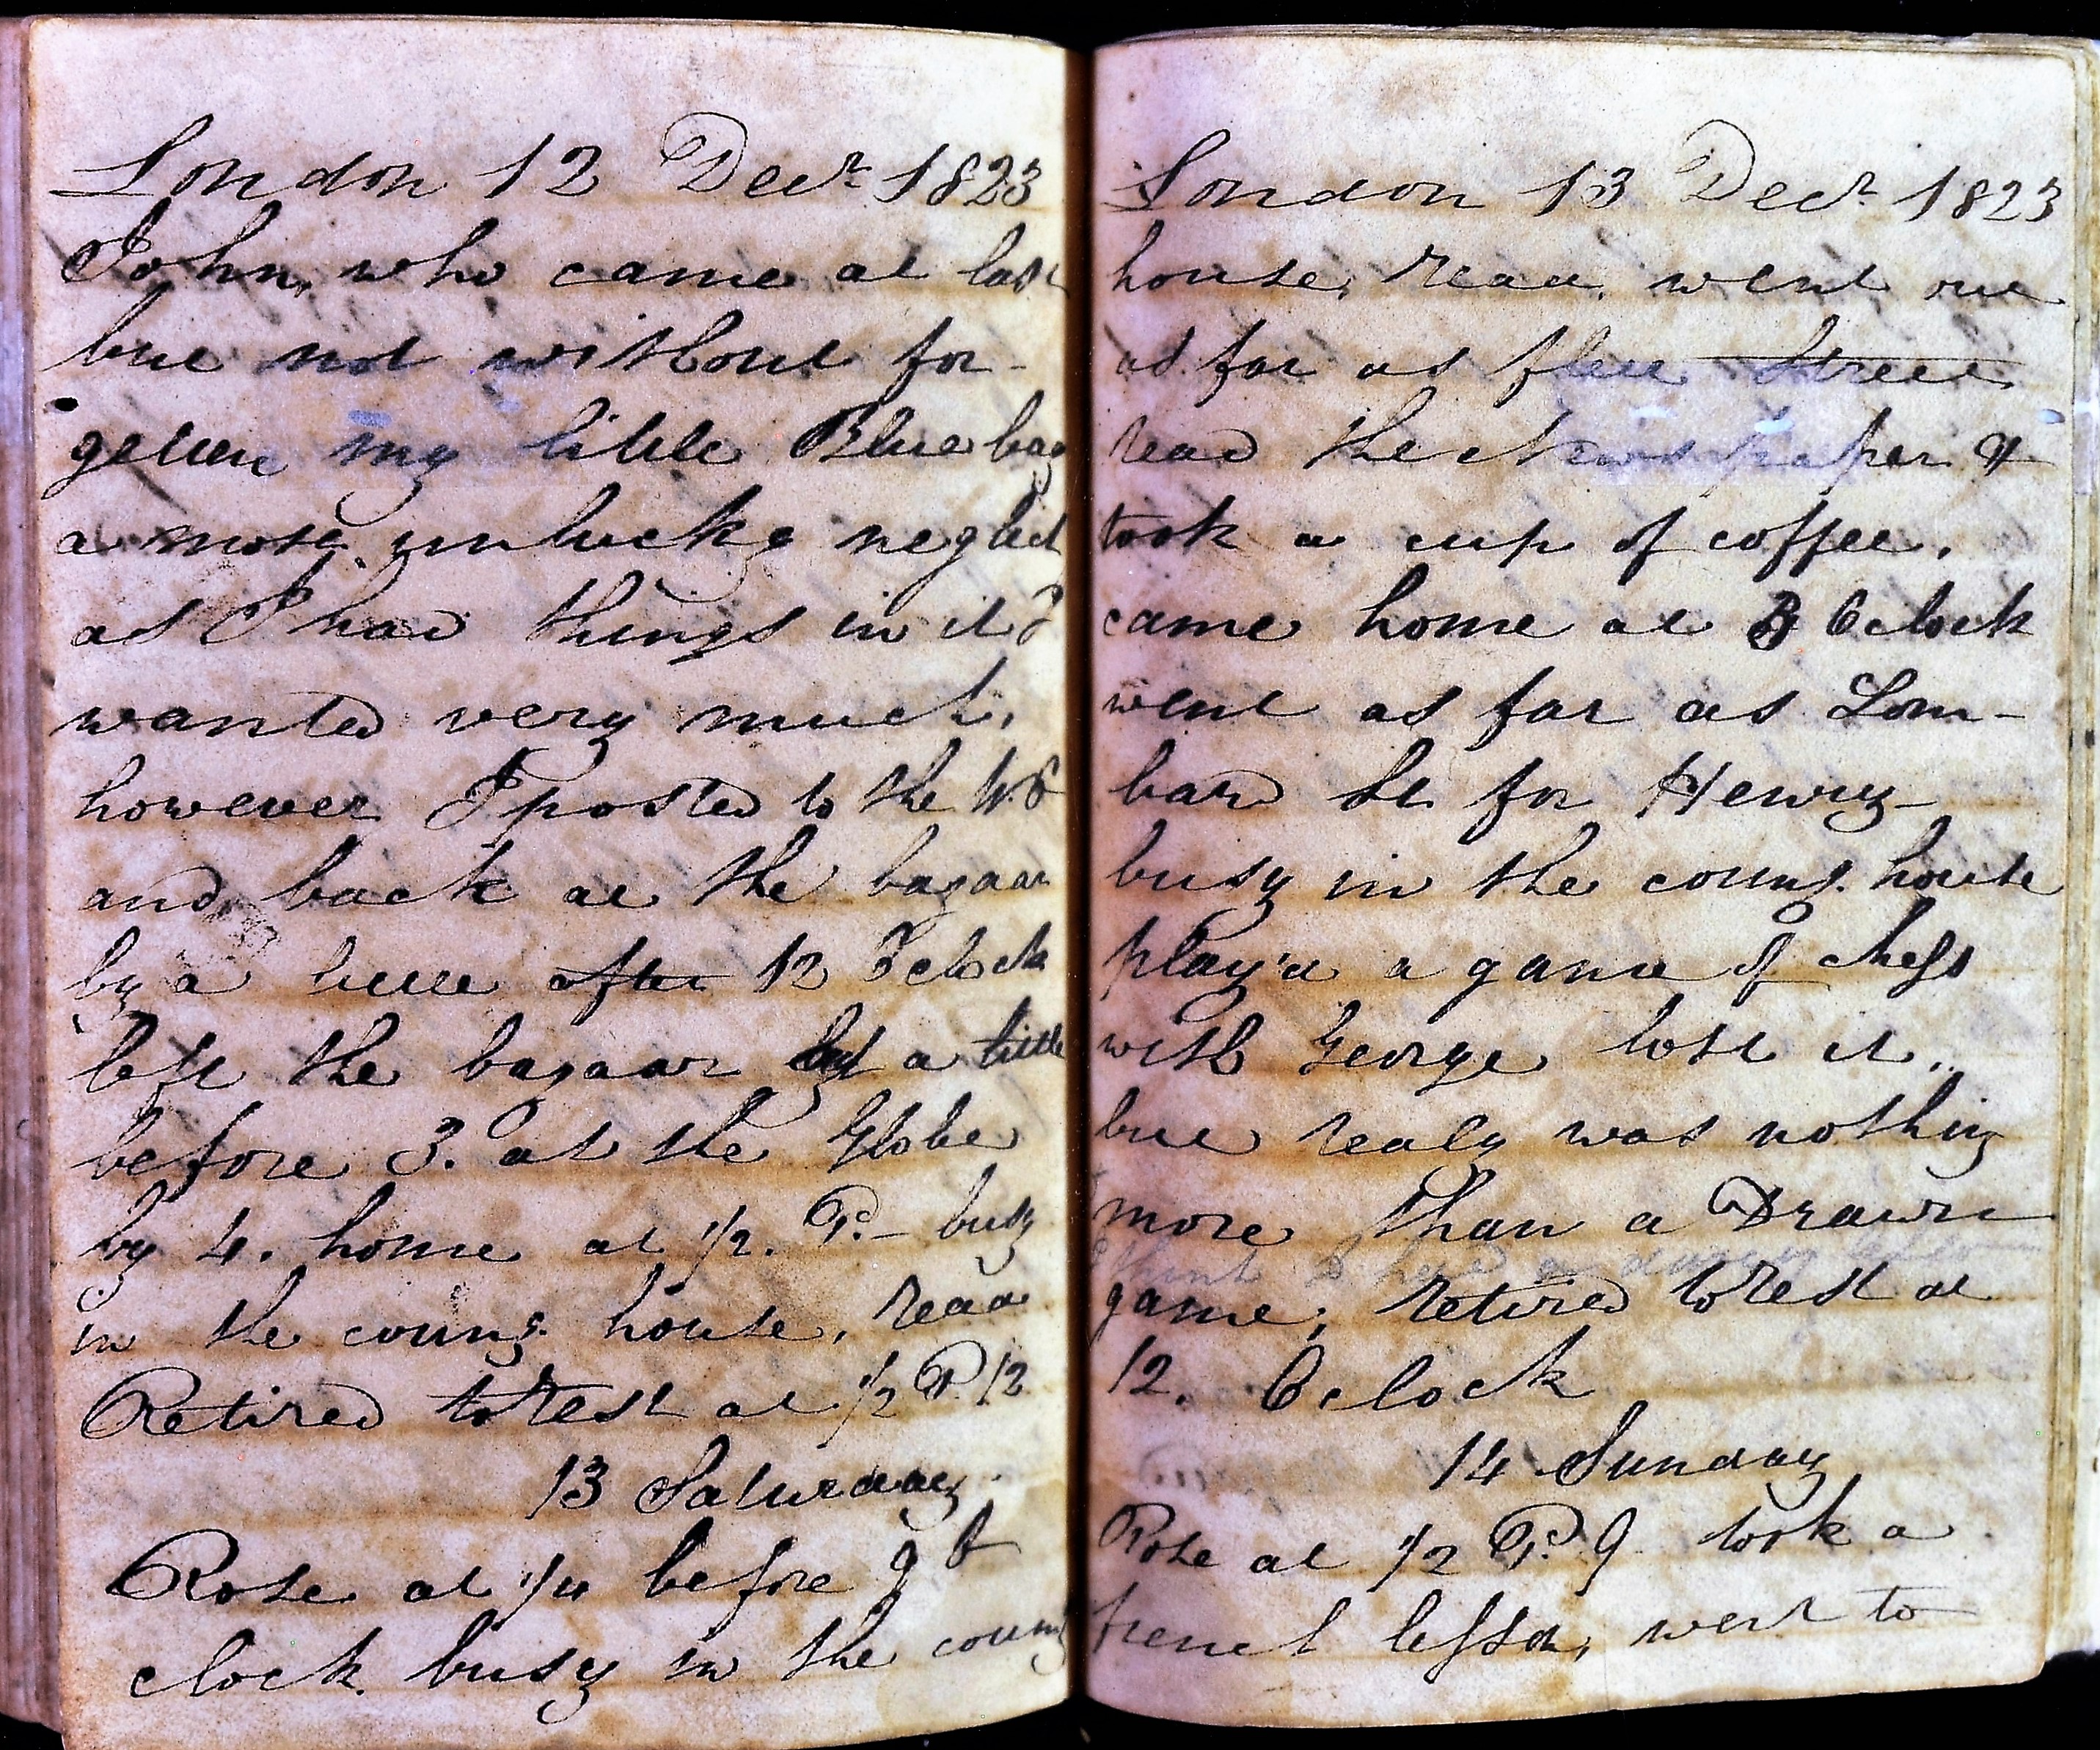 London 12 Decr. 1823
John, who came at last
but not without for-
getten my little Blue bag
a most unlucky neglect
as I had things in it I
wanted very much,
however I posted to the W.E
and back at the bazaar
by a little after 12 Oclock
left the bazaar by a little
before 3. at the Globe
by 4. home at 1/2. P.- busy
in the coung. house, read
Retired to rest at 1/2 P. 12
13 Saturday.
Rose at 1/4 before 9 O
clock. busy in the coung
London 13 Decr. 1823
house, read. went out
as far as fleet Street
read the Newspaper &
took a cup of coffee.
came home at 3 Oclock
went as far as Lom-
bard St for Henry-
busy in the coung. house
play'd a game of chess
with George lost it..
but realy was nothing
more than a Drawn
game; retired to rest at
12. Oclock
14 Sunday
Rose at 1/2 P. 9 took a
french lesson, went to